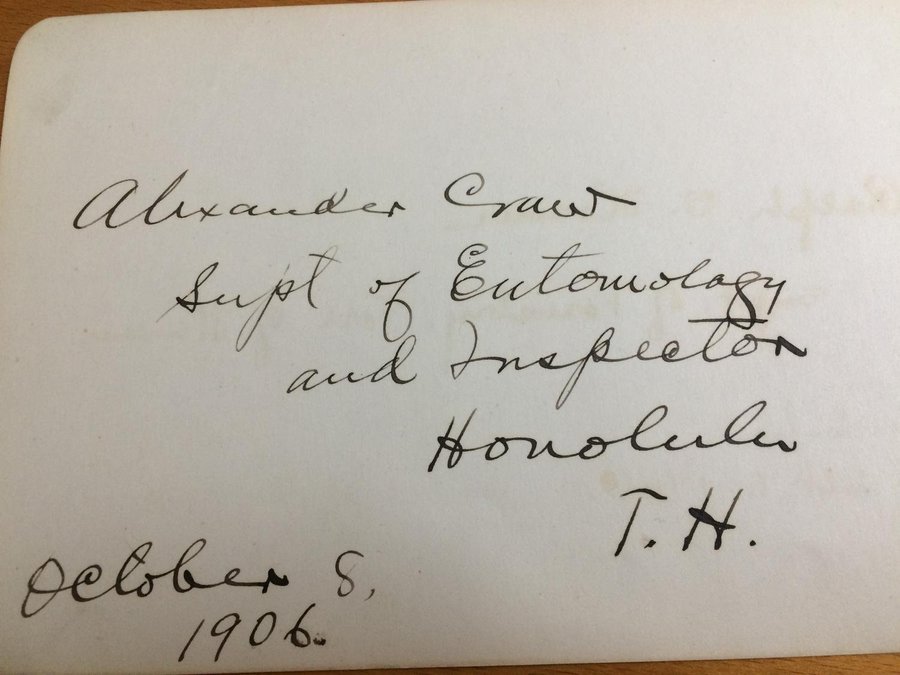 Alexander Craw
Supt of Entomology
and Inspector
Honolulu
T. H.
October 8,
1906.